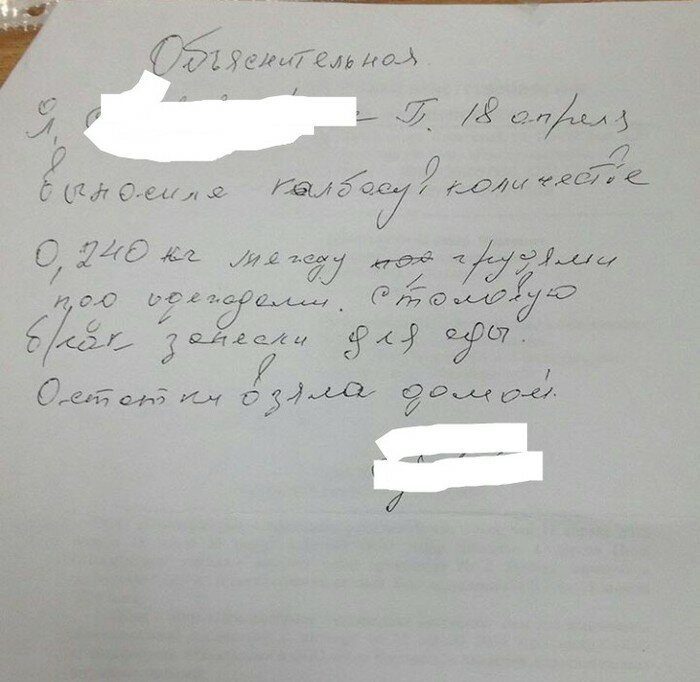 Объяснительная
Я, Г. 18 апреля
выносила колбасу в количестве
0,240 кг между под грудями
под одеждами. Столовую
б/как занесли для еды.
Остатки взяла домой.